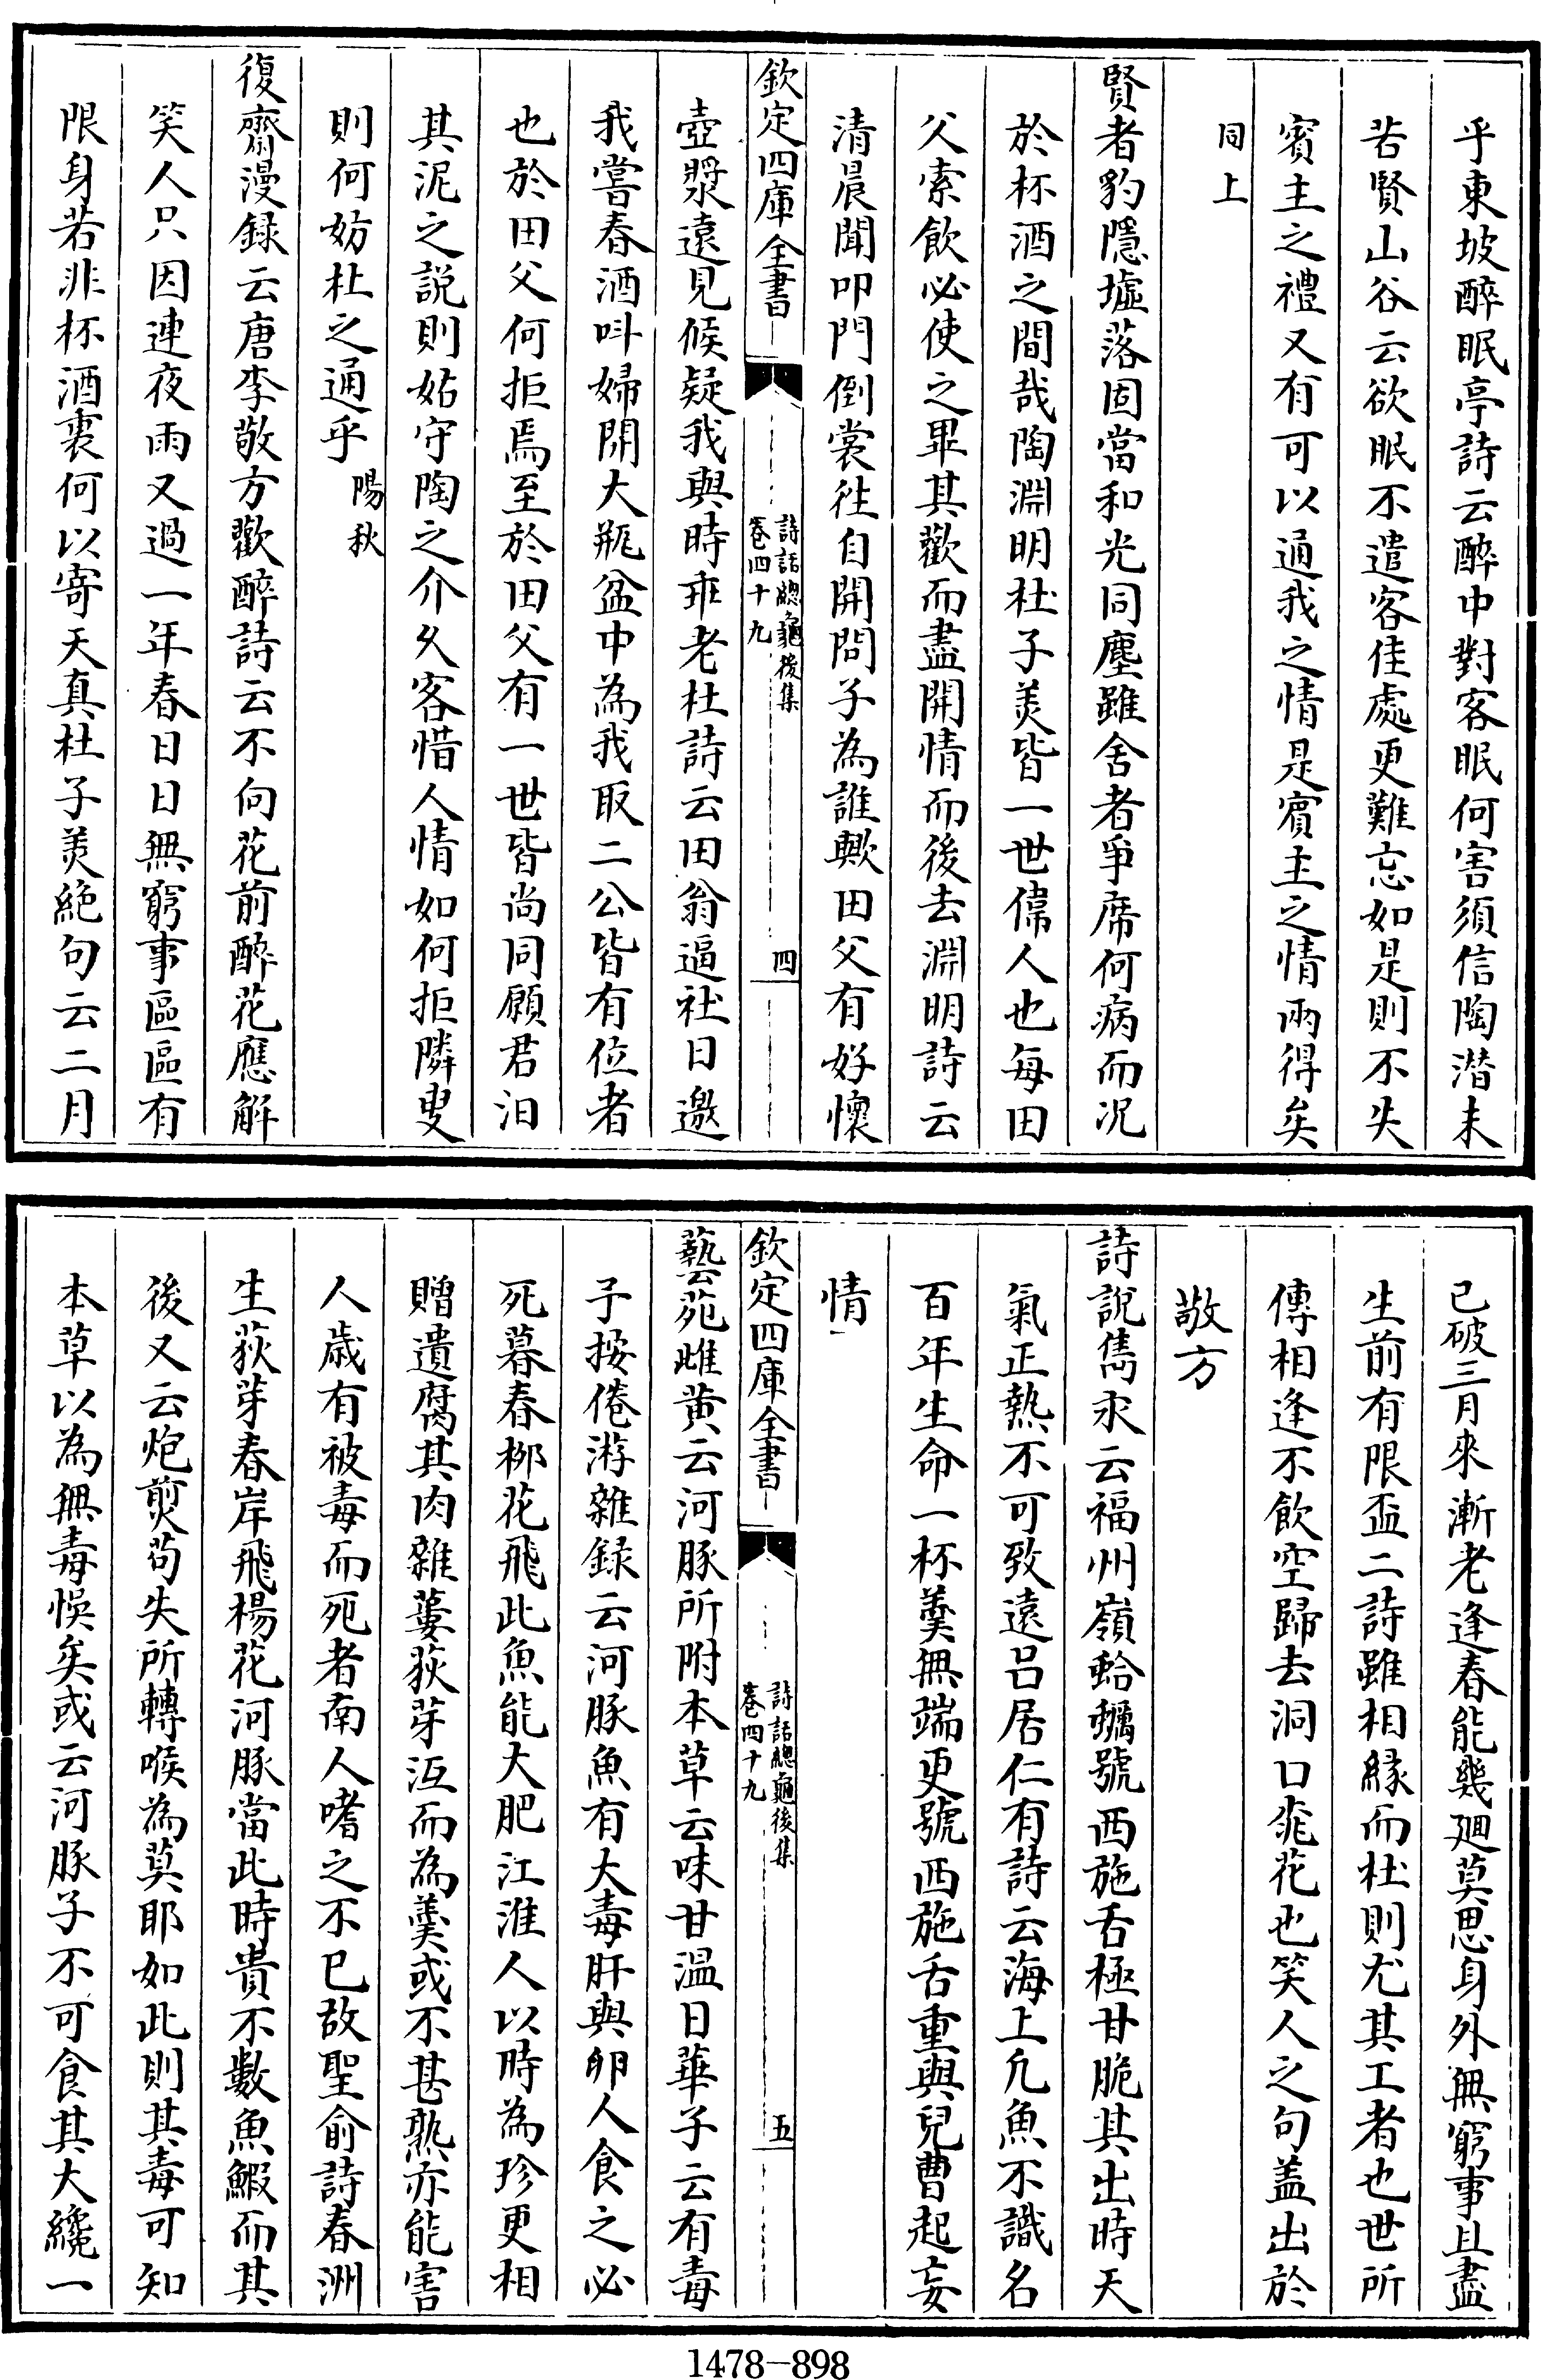 乎東坡醉眠亭詩云醉中對客眠何害須信陶潜未
若賢山谷云欲眠不遣客佳處更難忘如是則不失
賓主之禮又有可以通我之情是賓主之情兩得矣
同上
賢者豹隱墟落固當和光同塵雖舍者爭席何病而况
於杯酒之間哉陶淵明杜子美皆一世偉人也每田
父索飲必使之畢其歡而盡開情而後去淵明詩云
清晨聞叩門倒裳徃自開問子為誰歟田父有好懷
欽定四庫全書
詩話總龜後集
卷四十九
四
壺漿遠見候疑我與時乖老杜詩云田翁逼社日邀
我嘗春酒呌婦開大瓶盆中為我取二公皆有位者
也於田父何拒焉至於田父有一世皆尚同願君汩
其泥之説則姑守陶之介久客惜人情如何拒隣叟
則何妨杜之通乎
陽秋
復齋漫録云唐李敬方歡醉詩云不向花前醉花應解
笑人只因連夜雨又過一年春日日無窮事區區有
限身若非杯酒裏何以寄天真杜子美絶句云二月
已破三月來漸老逢春能幾廻莫思身外無窮事且盡
生前有限盃二詩雖相縁而杜則尤其工者也世所
傳相逢不飲空歸去洞口桃花也笑人之句盖出於
敬方
詩說雋永云福州嶺蛤蠣號西施舌極甘脆其出時天
氣正熱不可致遠吕居仁有詩云海上凢魚不識名
百年生命一杯羮無端更號西施舌重與兒曹起妄
情
欽定四庫全書
詩話總龜後集
卷四十九
五
藝苑雌黄云河豚所附本草云味甘温日華子云有毒
予按倦游雜録云河豚魚有大毒肝與卵人食之必
死暮春柳花飛此魚能大肥江淮人以時為珍更相
贈遺腐其肉雜蔞荻芽瀹而為羮或不甚熟亦能害
人歳有被毒而死者南人嗜之不已故聖俞詩春洲
生荻芽春岸飛楊花河豚當此時貴不數魚鰕而其
後又云炮煎茍失所轉喉為莫耶如此則其毒可知
本草以為無毒悞矣或云河豚子不可食其大纔一
1478-898